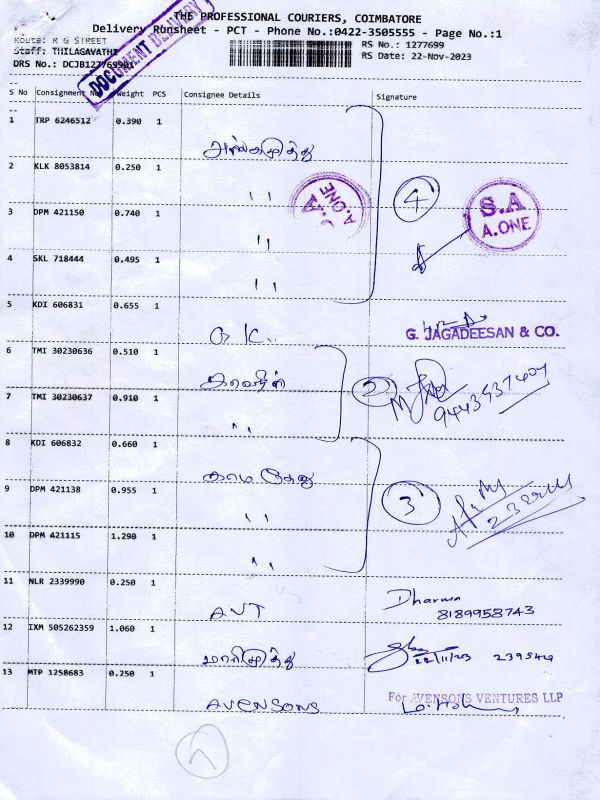 THE PROFESSIONAL COURIERS, COIMBATORE
Delivery Runsheet - PCT - Phone No.:0422-3505555 - Page No.:1
Route: R G STREET
Staff: THILAGAVATHI
DRS No.: DCJB127769901
DOCUMENT DELIVERY
RS No.: 1277699
RS Date: 22-Nov-2023
S No Consignment No Weight PCS Consignee Details Signature
1 TRP 6246512 0.390 1 அங்கமுத்து
2 KLK 8053814 0.250 1 "
S.A
A.ONE
4
S.A
A.ONE
3 DPM 421150 0.740 1 "
4 SKL 718444 0.495 1 "
5 KDI 606831 0.655 1 G K..
G. JAGADEESAN & CO.
6 TMI 30230636 0.510 1
2
7 TMI 30230637 0.910 1 "
8 KDI 606832 0.660 1 காமதேனு
9 DPM 421138 0.955 1 "
3
10 DPM 421115 1.290 1 "
11 NLR 2339990 0.250 1 AVT Dharma
8189958743
12 IXM 505262359 1.060 1 மாரிமுத்து
22/11/23
13 MTP 1258683 0.250 1 AVENSONS
For AVENSONS VENTURES LLP